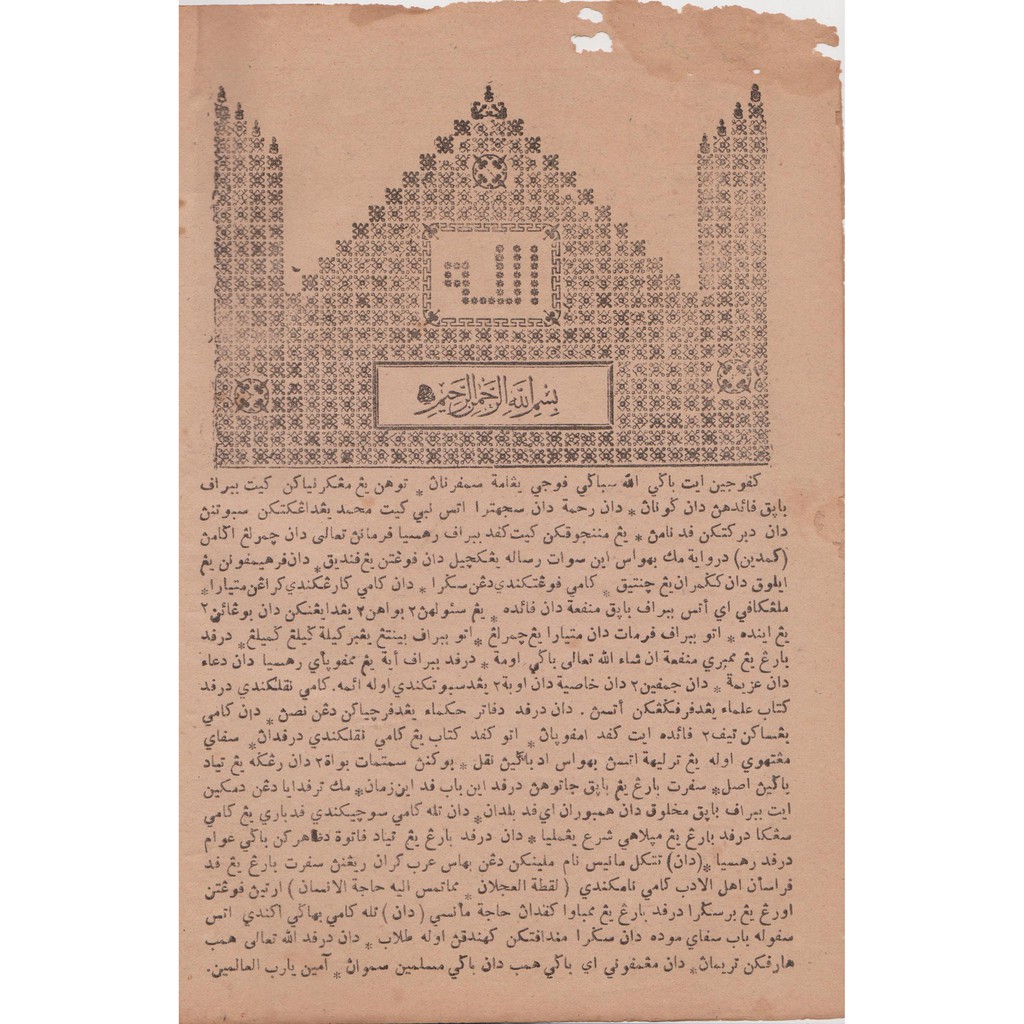 الله
بسم الله الرحمن الرحيم
كفوجين ايت باڬي الله سباڬي فوجي يڠلمة سمفرناڽ * توهن يڠ مڠكرنياكن كيت ببراف
باڽق فائدهن دان ݢوناڽ * دان رحمة دان سجهترا اتس نبي كيت محمد يڠداڠكتكن سبوتنڽ
دان دبركتكن فد نامڽ * يڠ مننجوقكن كيت كفد ببراف رهسيا فرمانڽ تعالى دان چمرلڠ اڬامڽ
(كمدين) درواية مك بهواس اين سوات رساله يڠكچيل دان فوڠتن يڠفنديق * دان فرهيمفونن يڠ
ايلوق دان ككمران يڠ چنتيق * كامي فوڠتكندي دڠن سڬرا * دان كامي كارڠكندي كراڠن متيارا *
ملڠكافي اي أتس ببراف باڽق منفعة دان فائده * يڠ سئولهن٢ بواهن٢ يڠدايڠنكن دان بوڠائن٢
يڠ اينده * اتو ببراف فرمات دان متيارا يڠچمرلڠ * اتو ببراف بينتڠ يڠبركيلة ݢيلڠ ݢميلڠ * درفد
بارڠ يڠ ممبري منفعة ان شاء الله تعالى باڬي اومة * درفد ببراف أية يڠ ممفوڽأي رهسيا دان دعاء
دان عزيمة * دان جمفين٢ دان خاصية دان اوبة٢ يڠدسبوتكندي اوله ائمه. كامي نقلكندي درفد
كتاب علماء يڠدفرفݢڠكن أتسڽ . دان درفد دفاتر حكماء يڠدفرچياكن دڠن نصڽ * دان كامي
بڠساكن تيف٢ فائده ايت كفد امفوڽاڽ * اتو كفد كتاب يڠ كامي نقلكندي درفداڽ * سفاي
مڠتهوي اوله يڠ ترليهة اتسڽ بهواس اد باڬين نقل * بوكنڽ سمتمات بواة٢ دان رڠكه يڠ تياد
باڬين اصل * سفرت بارڠ يڠ باڽق جاتوهن درفد اين باب فد اين زمان * مك ترفدايا دڠن دمكين
ايت ببراف باڽق مخلوق دان همبوران اي فد بلدان * دان تله كامي سوچيكندي فدباري يڠ كامي
سڠكا درفد بارڠ يڠ مڽلاهي شرع يڠمليا * دان درفد بارڠ يڠ تياد فاتوة دظاهركن باڬي عوام
درفد رهسيا * (دان) تتكل مانيس نام ملينكن دڠن بهاس عرب كران ريڠنڽ سفرت بارڠ يڠ فد
فراسأن اهل الادب كامي نامكندي ( لقطة العجلان * مماتمس اليه حاجة الانسان ) ارتين فوڠتن
اورڠ يڠ برسڬرا درفد بارڠ يڠ ممباوا كفداڽ حاجة مأنسي ( دان ) تله كامي بهاڬي اكندي اتس
سفوله باب سفاي موده دان سڬرا مندافتكن كهندقڽ اوله طلاب * دان درفد الله تعالى همب
هارفكن تريماڽ * دان مڠمفوني اي باڬي همب دان باڬي مسلمين سمواڽ * آمين يارب العالمين.